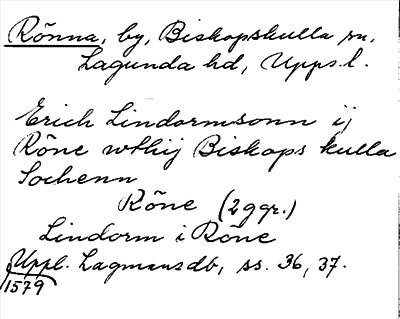 Rönna, by, Biskopskulla sn,
Lagunda hd, Upps. l.
Erich Lindormsonn ij
Röne wthij Biskops kulla
Sochenn
Röne (2 ggr.)
Lindorm i Röne
Uppl. Lagmansdb, ss. 36, 37.
1579